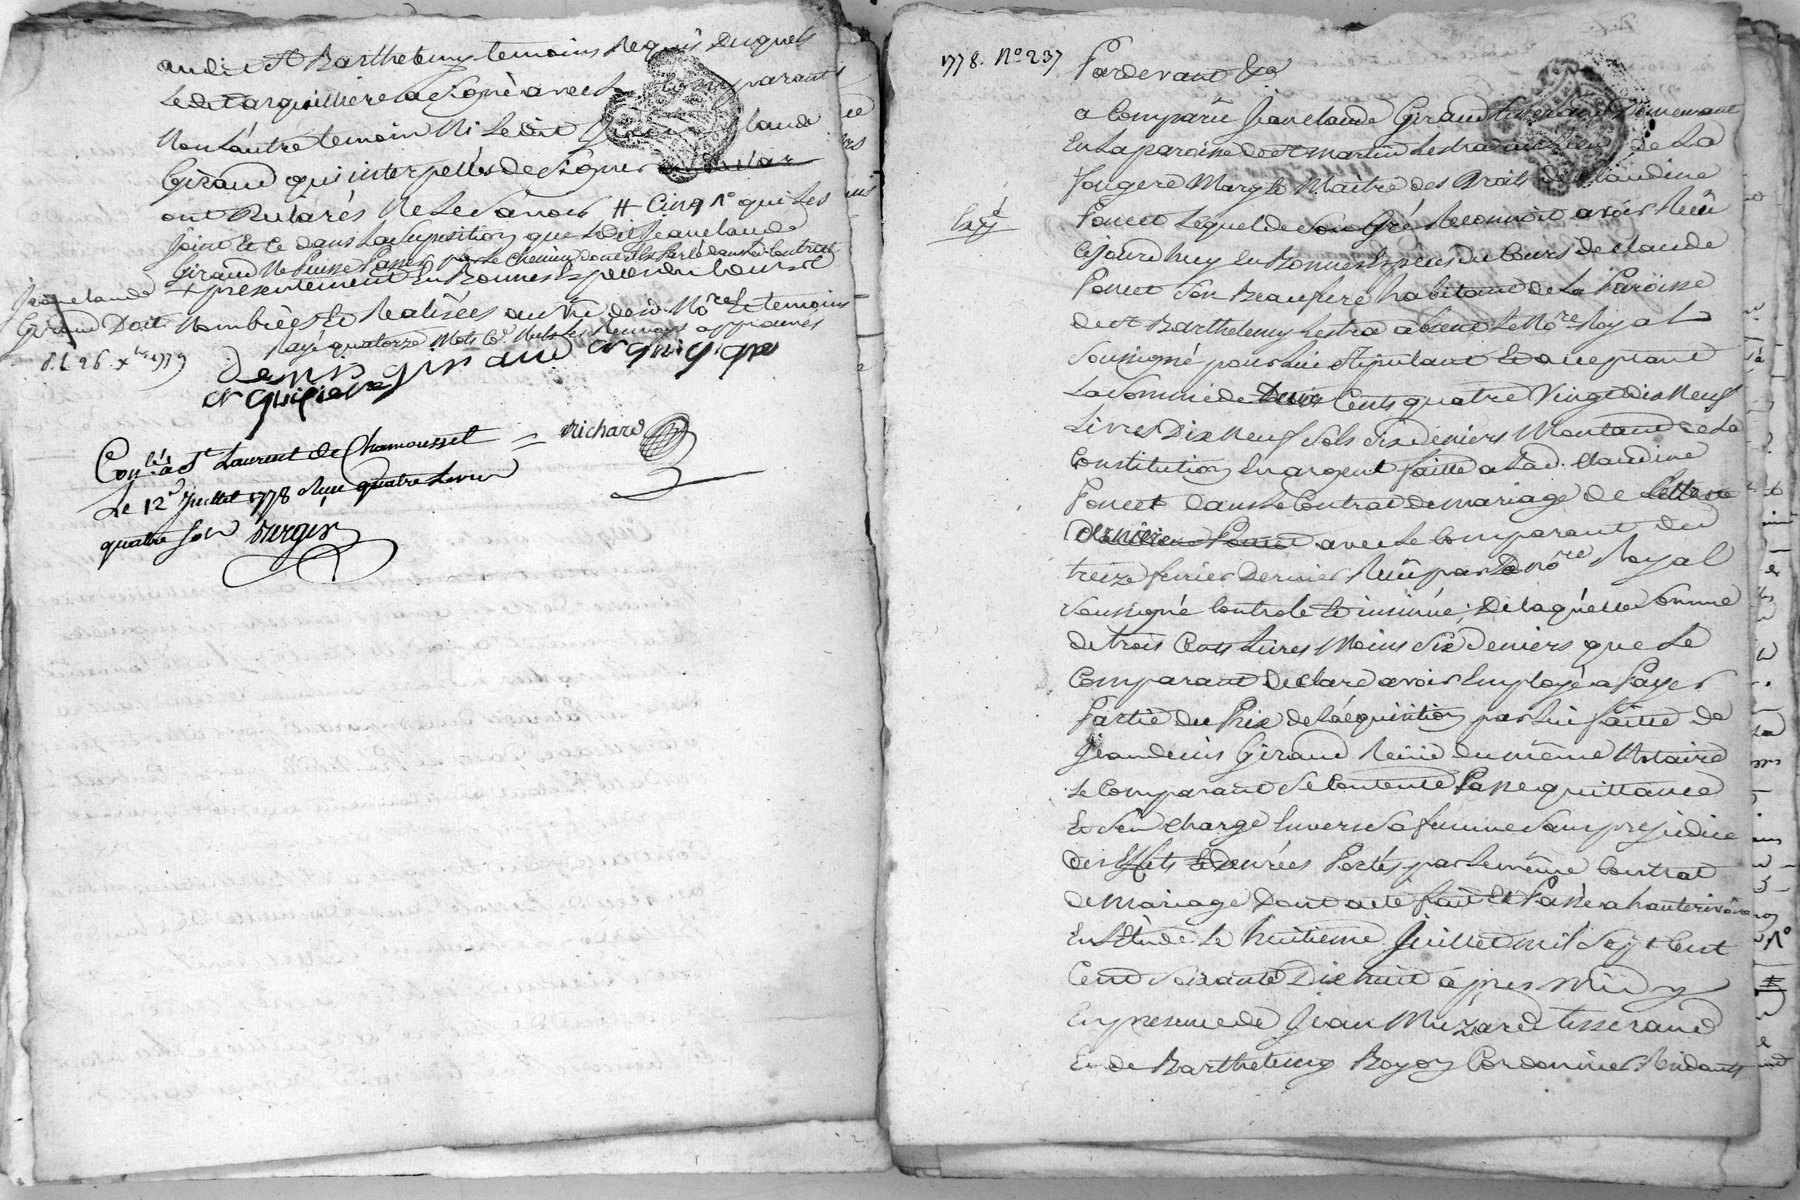 audit St Barthelemy temoins Requis desquels
Le dit arquilliere a signé avec
Non L'autre temoin Ni Ledit
Giraud qui interpellés de signer
ont declarés Ne le savoir # Cinq n° qui Les
Joint Et Ce dans La suposition que Ledit Jeanclaude
Giraud Ne Puisse Passer par Le Chemin dont Est Parlé dans Le Contract
+ presentement En Bonnes Especes du Cours
Nombrées Et Realisées au vu de nd. No.re Et temoins
Rayé quatorze Mots Nuls Les Renvois approuvés
Jeanclaude
Giraud Doit
8.L 26 xbre 1779
denis giraud
arquiliere
Conlé a St Laurent de Chamousset
Le 12e Juillet 1778 Reçu quatre Livres
quatre sols Burgin
Richard
1778. No 237
Pardevant &a
a Comparu Jeanclaude Giraud demeurant
En La paroisse de St martin Lestra au Lieu de La
fougere Mary Et Maitre des Droits de Claudine
Poncet Lequel de Son Gré Reconnoit avoir Reçu
Expé
Cejourdhuy En Bonnes Especes du Cours de claude
Poncet Son Beaufrere habitant de La Paroisse
de St Barthelemy Lestra absent Le No.re Royal
Soussigné pour Lui stipulant Et acceptant
La Somme de Deux Cents quatre Vingt dix Neuf
Livres Dix Neuf Sols Six deniers Montant de La
Constitution En argent faitte a Lad. Claudine
Poncet dans Le Contrat de mariage de
avec Le Comparant du
treize fevrier Dernier Reçu par Le No.re Royal
Soussigné Controlé Et insinué; De Laquelle Somme
de trois Cents Livres Moins Six Deniers que Le
Comparant declare avoir Employé a Payer
Partie du Prix de L'acquisition par Lui faitte de
Jean denis Giraud Reçue du même Notaire
Le Comparant Se Contente Passe quittance
Et S'en charge Envers Sa femme Sans prejudice
des Effets Et denrées Portés par Le même Contrat
de mariage Dont acte fait Et Passé a hauterivoire
En L'Etude Le huitieme Juillet mil Sept Cent
Cent Soixante Dix huit après Midy
En presence de Jean Muzard tisserand
Et de Barthelemy Royon Cordonnier Residants